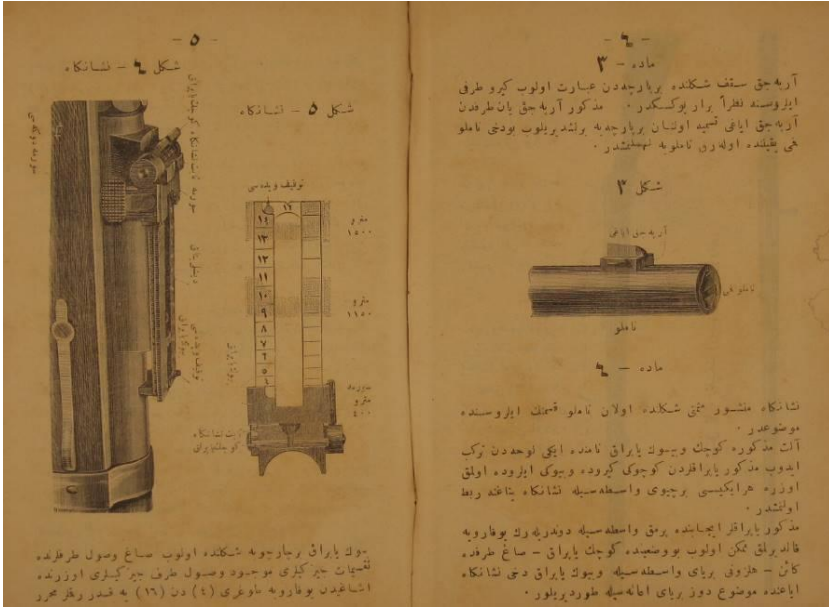 - ٤ -
ماده - ٣
آربه‌جق سقف شكلنده بر پارچه‌دن عبارت اولوب كيرو طرفى
ايلروسنه نظراً براز يوكسكدر . مذكور آربه‌جق يان طرفدن
آربه‌جق اياغى تسميه اولنان بر پارچه‌يه برلشديريلوب بو دخى ناملو
شكل ٣
آربه‌جق اياغى
ناملو
ماده - ٤
نشانكاه منشور مثمنى شكلنده اولان ناملو قسمنك ايلروسنده
موضوعدر .
آلت مذكوره كوچك و بيوك ياپراق نامنده ايكى لوحه‌دن تركب
ايدوب مذكور ياپراقلردن كوچوكى كيروده و بيوكى ايلروده اولمق
اوزره هر ايكيسى بر چيوى واسطه‌سيله نشانكاه ربط
اولنمشدر .
مذكور ياپراقلر ايجابنده پرمق واسطه‌سيله دوندريله‌رك يوقارويه
قالديرلمق ممكن اولوب بو وضعيتده كوچك ياپراق - صاغ طرفده
كائن - واسطه‌سيله و بيوك ياپراق دخى نشانكاه
موضوع دوز برياى اعانه‌سيله طورديريلور .
- ٥ -
شكل ٤ - نشانكاه
شكل ٥ - نشانكاه
توقيف ويده‌سى
١٤
١٣
١٢
١١
١٠
٩
٨
٧
٦
٥
مترو
١٥٠٠
مترو
١١٥٠
مترو
٤٠٠
ثابت نشانكاه
بيوك ياپراق بر چارچوبه شكلنده اولوب صاغ و صول طرفلرنده
تقسيمات چيزكيلرى موجود و صول طرف چيزكيلرى اوزرنده
اشاغيدن يوقارويه طوغرى (٤) دن (١٦) يه قدر رقملر محرر